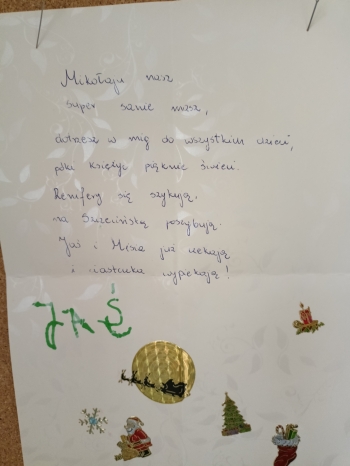 Mikołaju nasz
super sanie masz,
w mig do wszystkich dzieci,
póki księżyc pięknie świeci.
Renifery się szykują.
na Szczecińską poszybują.
Jaś i już czekają
i ciasteczka wypiekają!
JAŚ